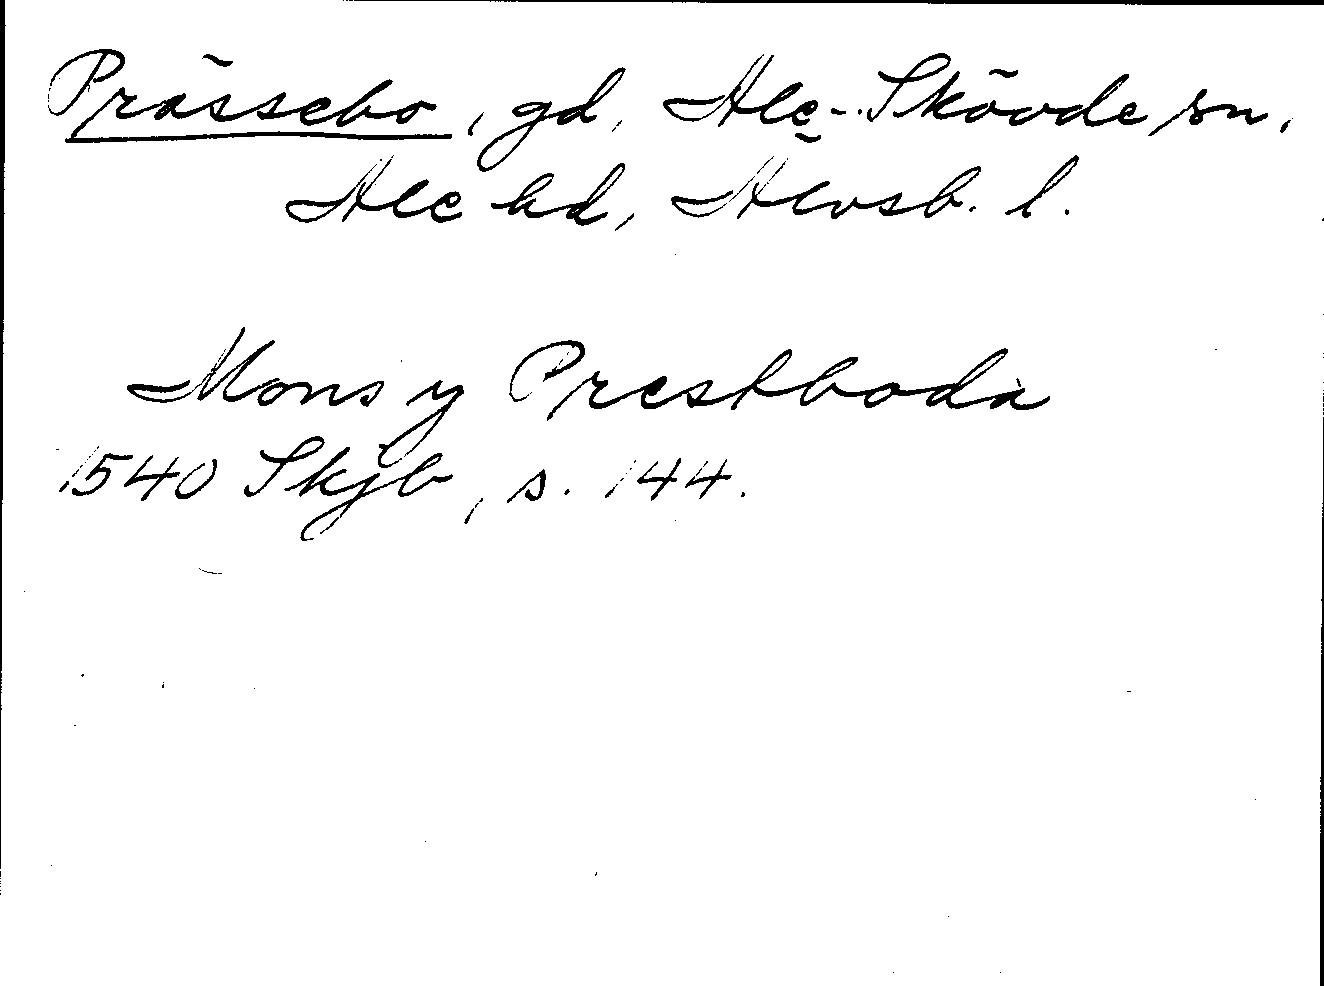 Prässebo, gd, Ale-Skövde sn.
Ale hd, Älvsb. l.
Mons y Prestboda
1540 Skjb, s. 144.